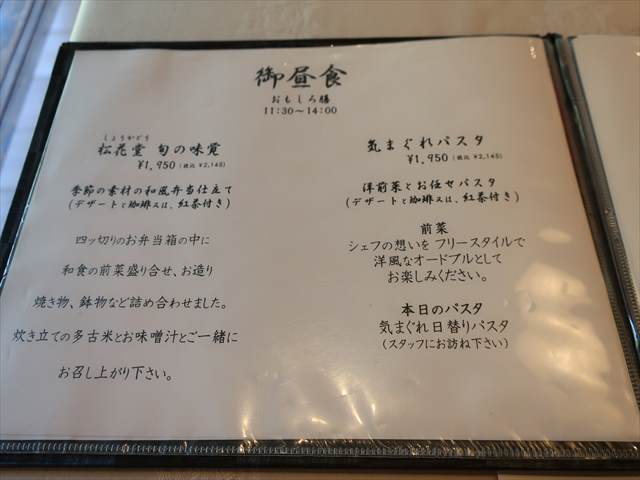 御昼食
おもしろ膳
11:30～14:00
しょうかどう
松花堂 旬の味覚
¥1,950 (税込 ¥2,145)
季節の素材の和風弁当仕立て
(デザートと珈琲又は、紅茶付き)
四ッ切りのお弁当箱の中に
和食の前菜盛り合せ、お造り
焼き物、鉢物など詰め合わせました。
炊き立ての多古米とお味噌汁とご一緒に
お召し上がり下さい。
気まぐれパスタ
¥1,950 (税込 ¥2,145)
洋前菜とお任せパスタ
(デザートと珈琲又は、紅茶付き)
前菜
シェフの想いを フリースタイルで
洋風なオードブルとして
お楽しみください。
本日のパスタ
気まぐれ日替りパスタ
(スタッフにお訪ね下さい)